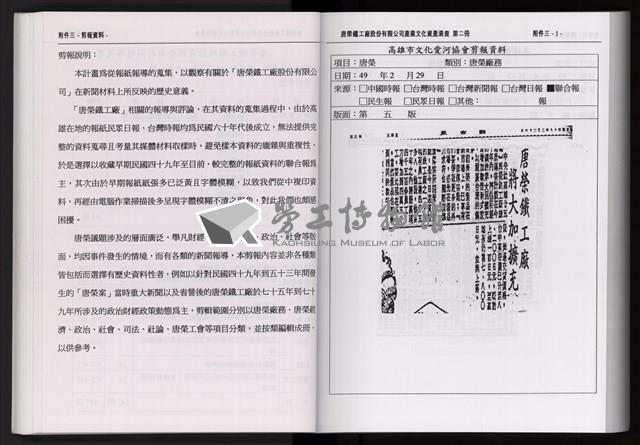 附件三 - 剪報資料 -
剪報說明：
本計畫為從報紙報導的蒐集，以觀察有關於「唐榮鐵工廠股份有限公
司」在新聞材料上所反映的歷史意義。
「唐榮鐵工廠」相關的報導與評論，在其資料的蒐集過程中，由於高
雄在地的報紙民眾日報、台灣時報均為民國六十年代後成立，無法提供完
整的資料蒐尋且考量其媒體材料取樣時，避免樣本資料的龐雜與重複性，
於是選擇以收藏早期民國四十九年至目前，較完整的報紙資料的聯合報為
主，其次由於早期報紙紙張多已泛黃且字體模糊，以致我們從中複印資
料，再經由電腦作業掃描後多呈現字體模糊不清之現象，對此我們也頗感
困擾。
唐榮議題涉及的層面廣泛，舉凡財經、政治、社會等版
面，均因事件發生的情境，而有各類的新聞報導，本剪報內容並非各種類
皆包括而選擇有歷史資料性者，例如以針對民國四十九年到五十三年間發
生的「唐榮案」當時重大新聞以及省營後的唐榮鐵工廠於七十五年到七十
九年所涉及的政治財經政策動態爲主，剪輯範圍分別以唐榮廠務、唐榮經
濟、政治、社會、司法、社論、唐榮工會等項目分類，並按類編輯成冊，
以供參考。
唐榮鐵工廠股份有限公司產業文化資產清查 第二冊
附件三 - 1 -
高雄市文化愛河協會剪報資料
項目：唐榮 類別：唐榮廠務
日期：49 年 2 月 29 日
來源：□中國時報 □台灣時報 □台灣新聞報 □台灣日報 ■聯合報
□民生報 □民眾日報 □其他： 報
版面：第 五 版
唐榮鐵工廠
將大加擴充
勞工博物館
KAOHSIUNG MUSEUM OF LABOR